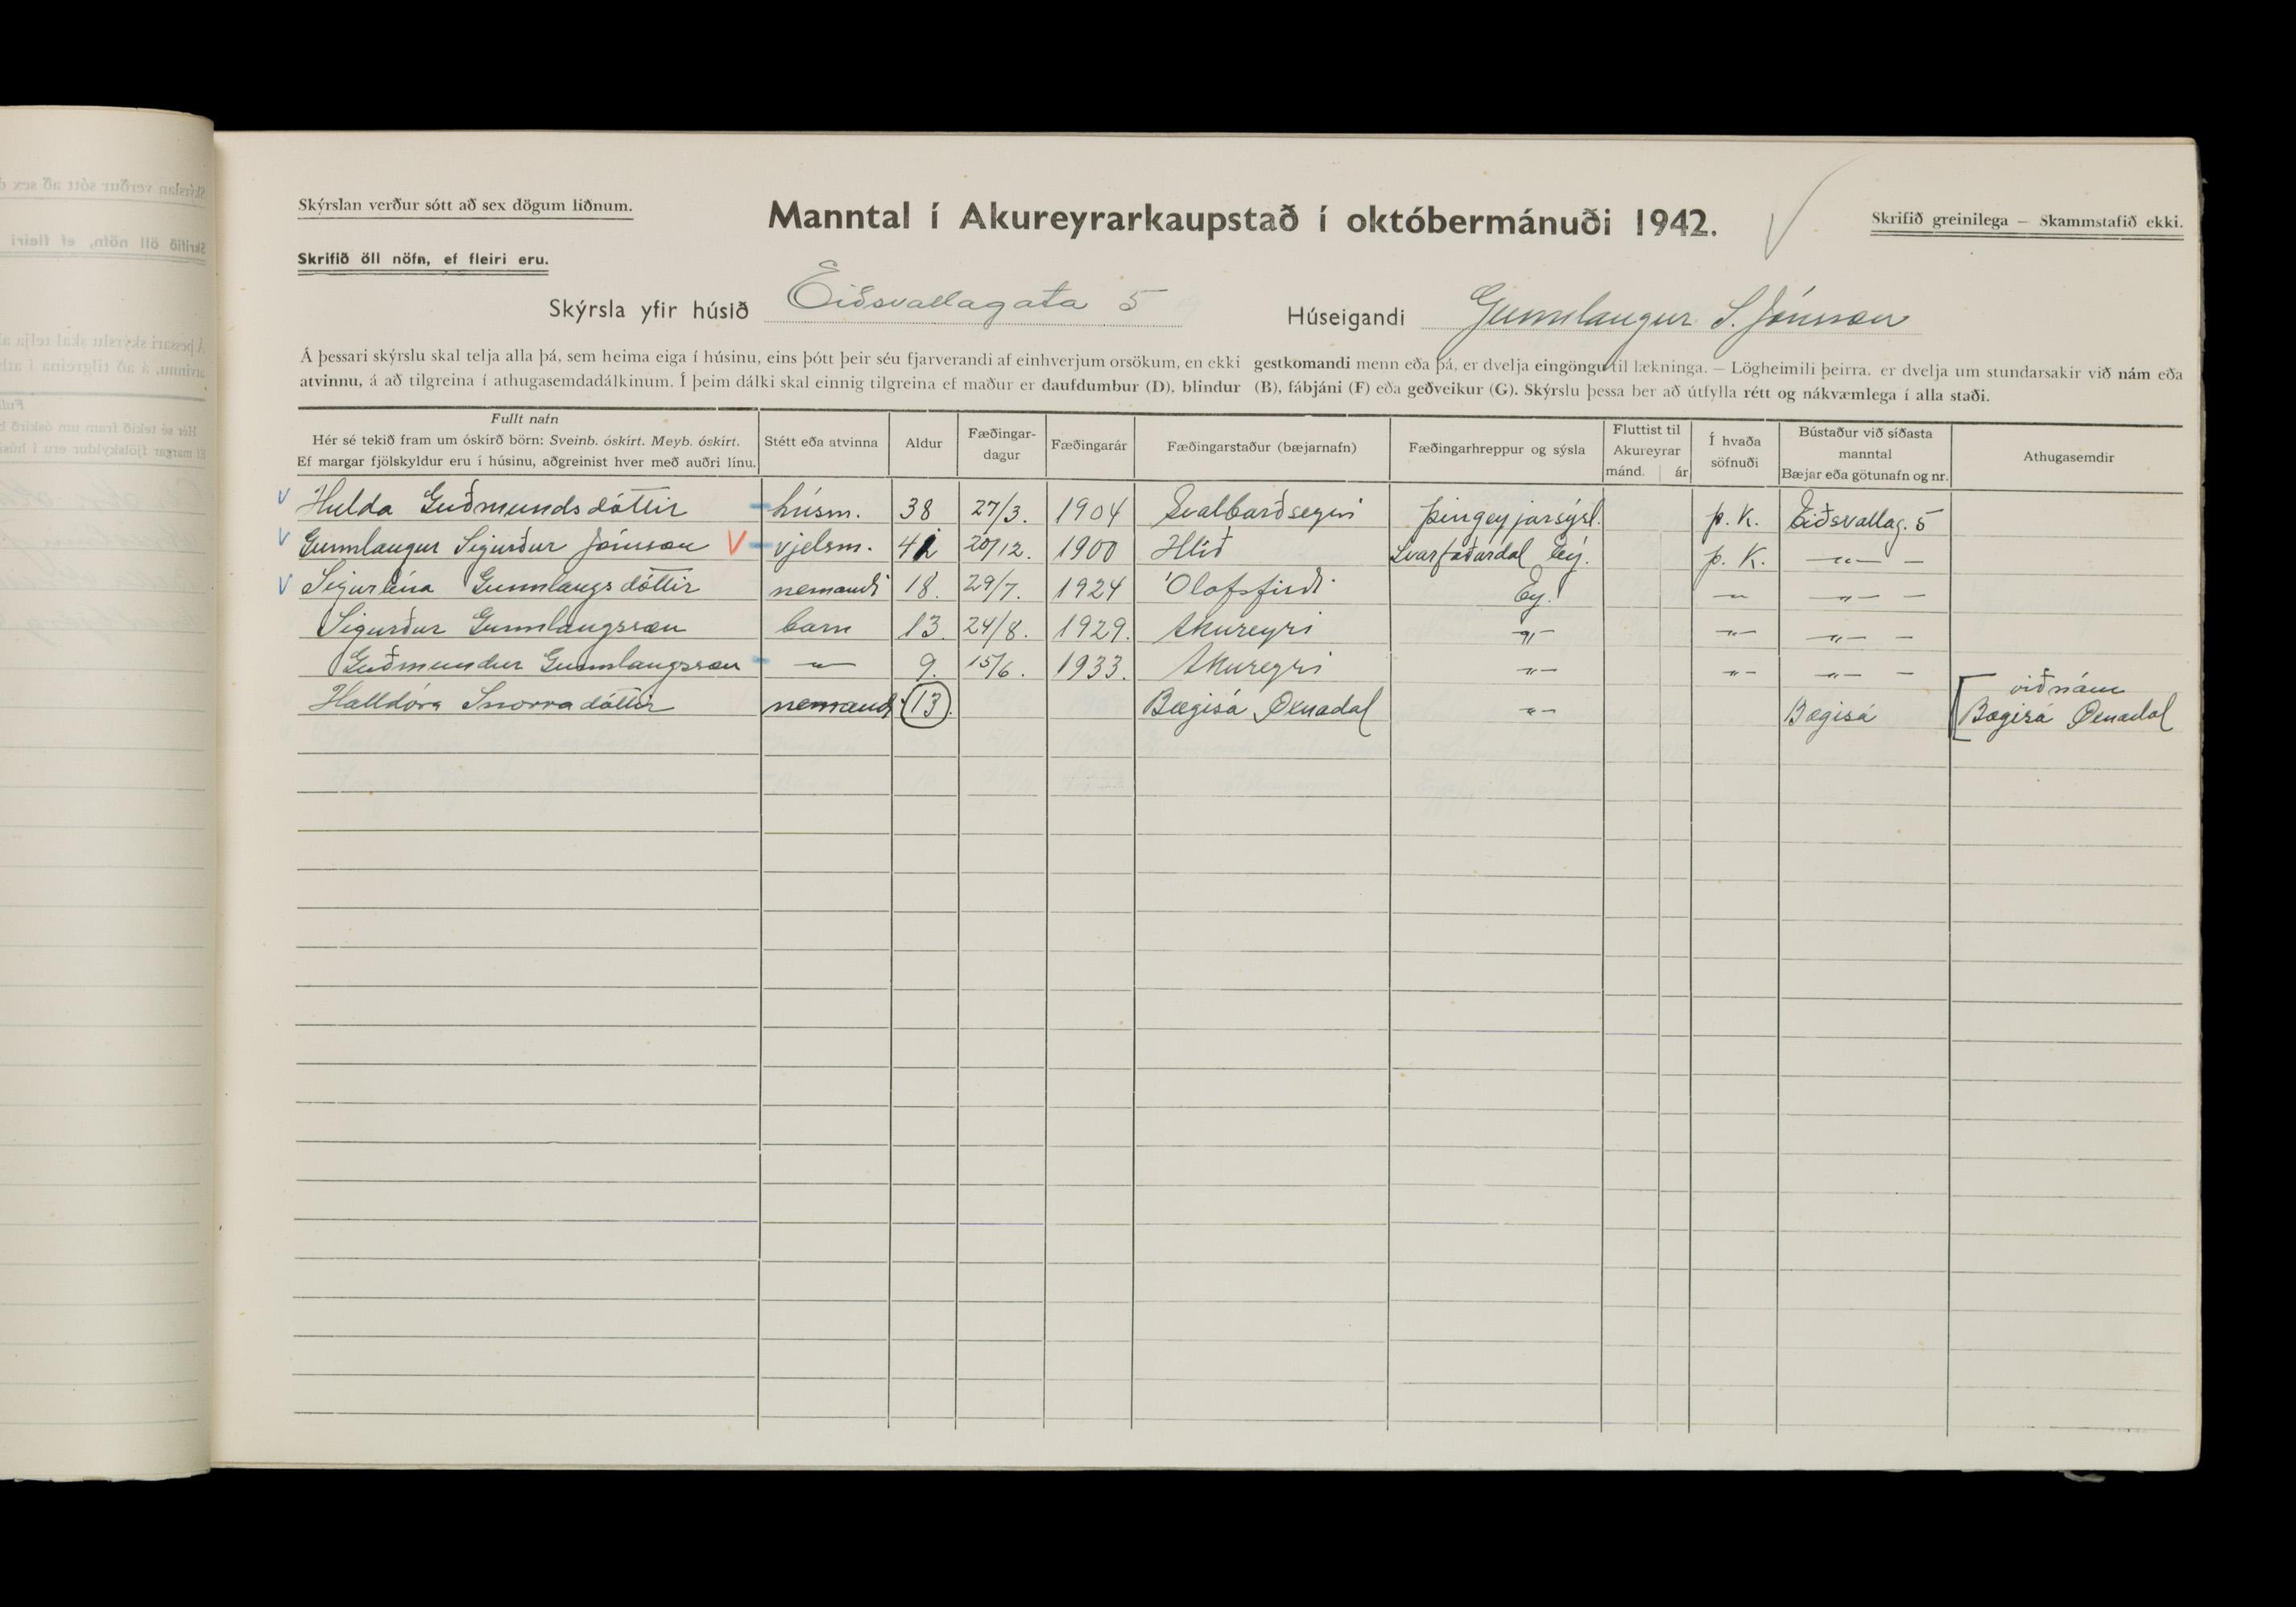 Skýrslan verður sótt að sex dögum liðnum.
Manntal í Akureyrarkaupstað í októbermánuði 1942.
Skrifið greinilega — Skammstafið ekki.
Skrifið öll nöfn, ef fleiri eru.
Skýrsla yfir húsið Eiðsvallagata 5 Húseigandi Gunnlaugur S. Jónsson
Á þessari skýrslu skal telja alla þá, sem heima eiga í húsinu, eins þótt þeir séu fjarverandi af einhverjum orsökum, en ekki gestkomandi menn eða þá, er dvelja eingöngu til lækninga. — Lögheimili þeirra, er dvelja um stundarsakir við nám eða
atvinnu, á að tilgreina í athugasemdadálkinum. Í þeim dálki skal einnig tilgreina ef maður er daufdumbur (D), blindur (B), fábjáni (F) eða geðveikur (G). Skýrslu þessa ber að útfylla rétt og nákvæmlega í alla staði.
Fullt nafn
Hér sé tekið fram um óskírð börn: Sveinb. óskírt. Meyb. óskírt.
Ef margar fjölskyldur eru í húsinu, aðgreinist hver með auðri línu.
Stétt eða atvinna
Aldur
Fæðingar-
dagur
Fæðingarár
Fæðingarstaður (bæjarnafn)
Fæðingarhreppur og sýsla
Fluttist til
Akureyrar
mánd. ár
Í hvaða
söfnuði
Bústaður við síðasta
manntal
Bæjar eða götunafn og nr.
Athugasemdir
V Hulda Guðmundsdóttir húsm. 38 27/3. 1904 Svalbarðseyri Þingeyjarsýsl. þ. K. Eiðsvallag. 5
V Gunnlaugur Sigurður Jónsson V vjelsm. 20/12. 1900 Hlíð Svarfaðardal Eý. þ. K. —"— —
V Sigurlína Gunnlaugsdóttir nemandi 18. 29/7. 1924 Ólafsfirði Ey. — —"— —
Sigurður Gunnlaugsson barn 13. 24/8. 1929. Akureyri —"— —"— —"— —
Guðmundur Gunnlaugsson —"— 9. 15/6. 1933. Akureyri —"— —"— —"— —
Halldóra Snorradóttir nemandi 13. Bægisá Öxnadal —"— Bægisá
við nám
Bægisá Öxnadal